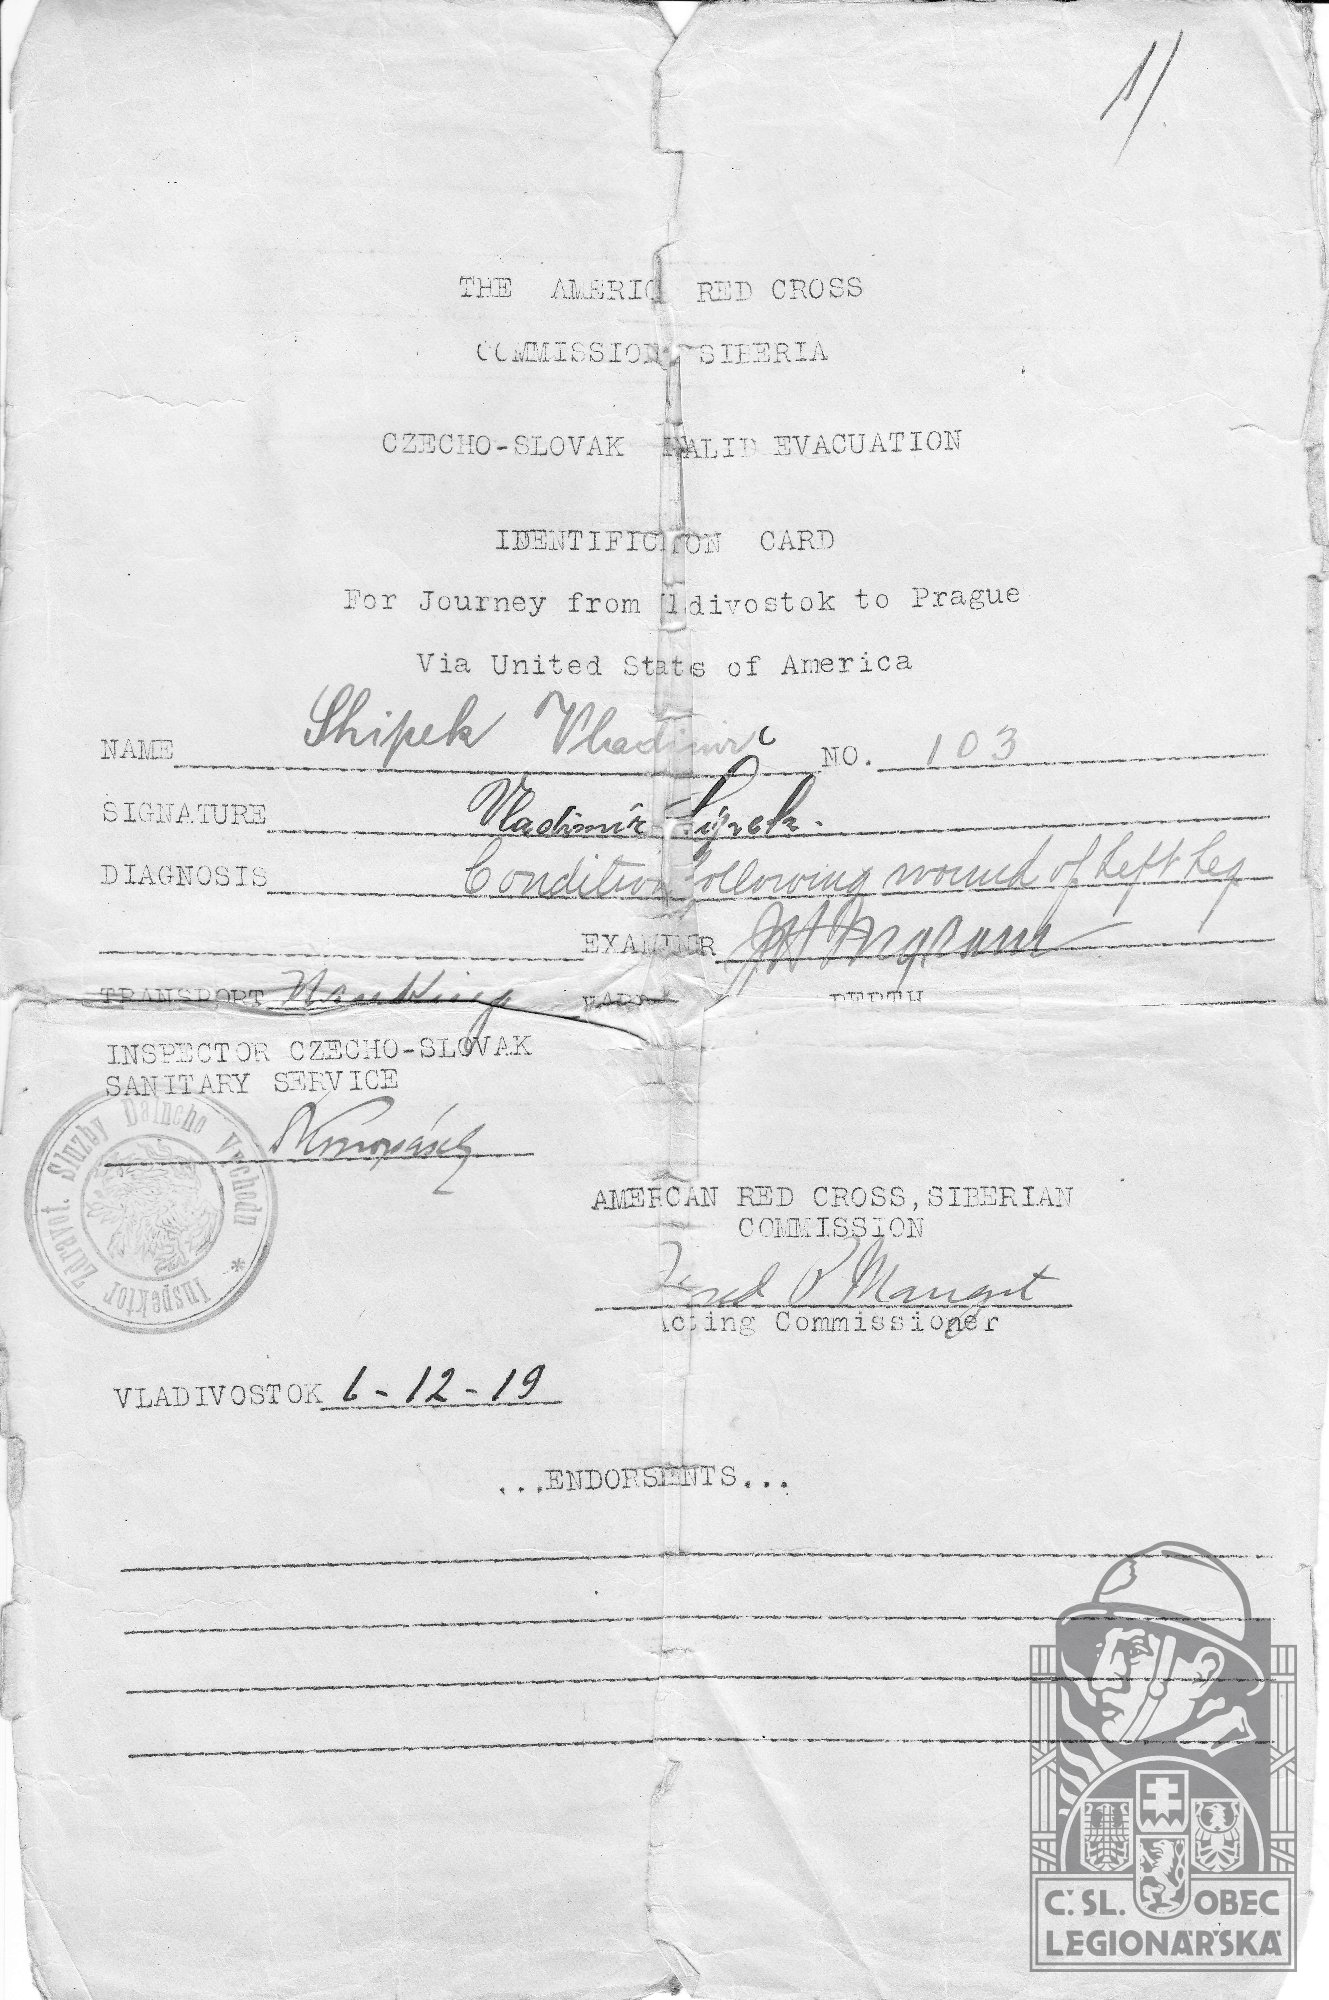 1/
THE AMERIC RED CROSS
COMMISSION SIBERIA
CZECHO-SLOVAK NVALID EVACUATION
IDENTIFIC ION CARD
For Journey from ldivostok to Prague
Via United States of America
NAME Shipek Vladimir NO. 103
SIGNATURE Vladimír Šípek.
DIAGNOSIS Condition following wound of left leg
EXAMINER
TRANSPORT Nanking WARD BERTH
INSPECTOR CZECHO-SLOVAK
SANITARY SERVICE
Inspektor Zdravot. Služby Dalneho Vychodu *
AMERCAN RED CROSS, SIBERIAN
COMMISSION
Fred P Mangut
Acting Commissioner
VLADIVOSTOK 6-12-19
...ENDORSENTS...
Č. SL. OBEC
LEGIONÁŘSKÁ